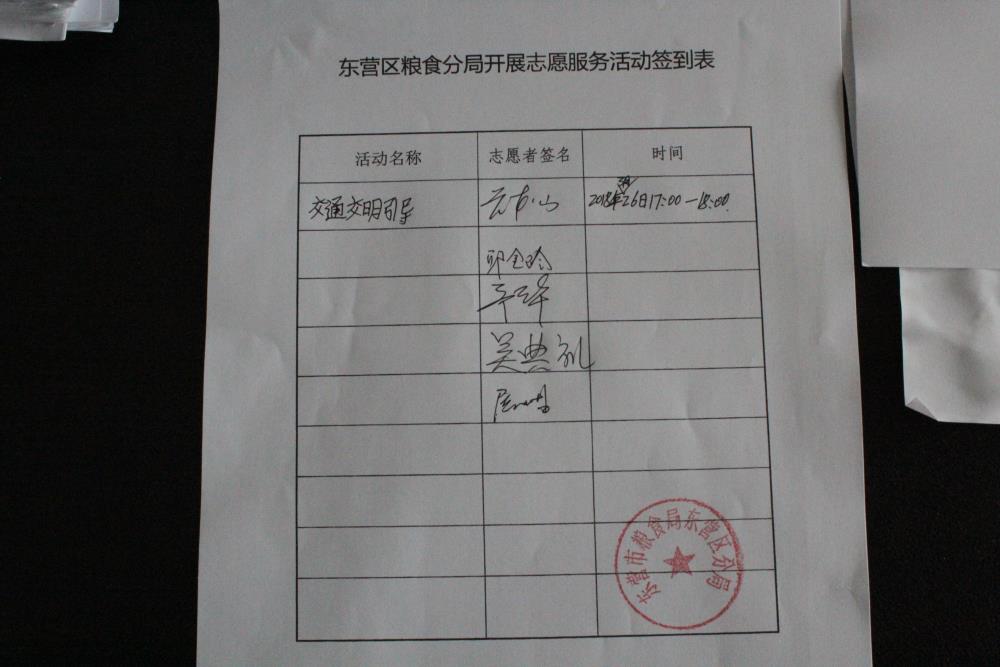 东营区粮食分局开展志愿服务活动签到表
活动名称 志愿者签名 时间
交通文明引导 2018年 26日17:00—18:00
吴典礼
东营市粮食局东营区分局